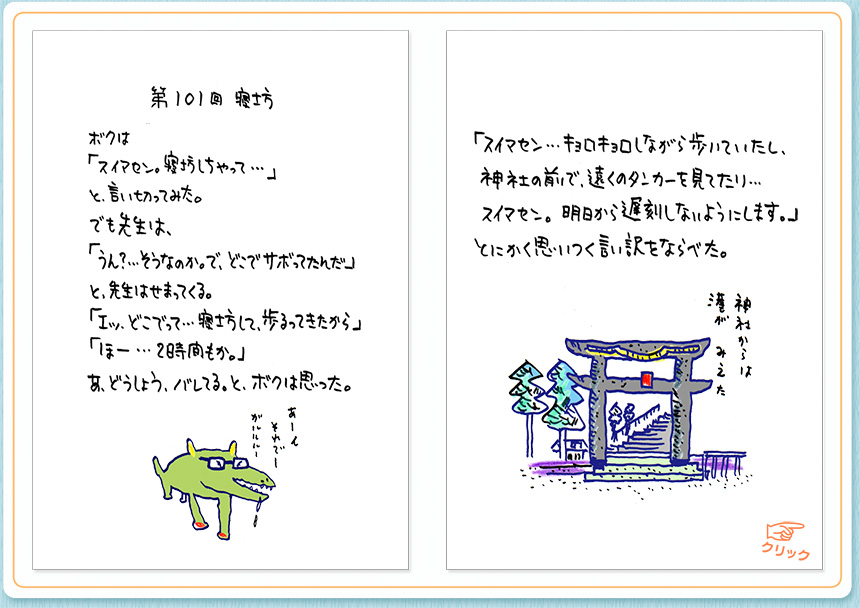 第101回 寝坊
ボクは
「スイマセン。寝坊しちゃって…」
と、言い切ってみた。
でも先生は、
「うん?…そうなのか。で、どこでサボってたんだ」
と、先生はせまってくる。
「エッ、どこでって…寝坊して、歩るってきたから」
「ほー…2時間もか。」
あ、どうしよう、バレてる。と、ボクは思った。
あーん
それでー
ガルルルー
「スイマセン…キョロキョロしながら歩いていたし、
神社の前で、遠くのタンカーを見てたり…
スイマセン。明日から遅刻しないようにします。」
とにかく思いつく言い訳をならべた。
神社からは
港が みえた
クリック